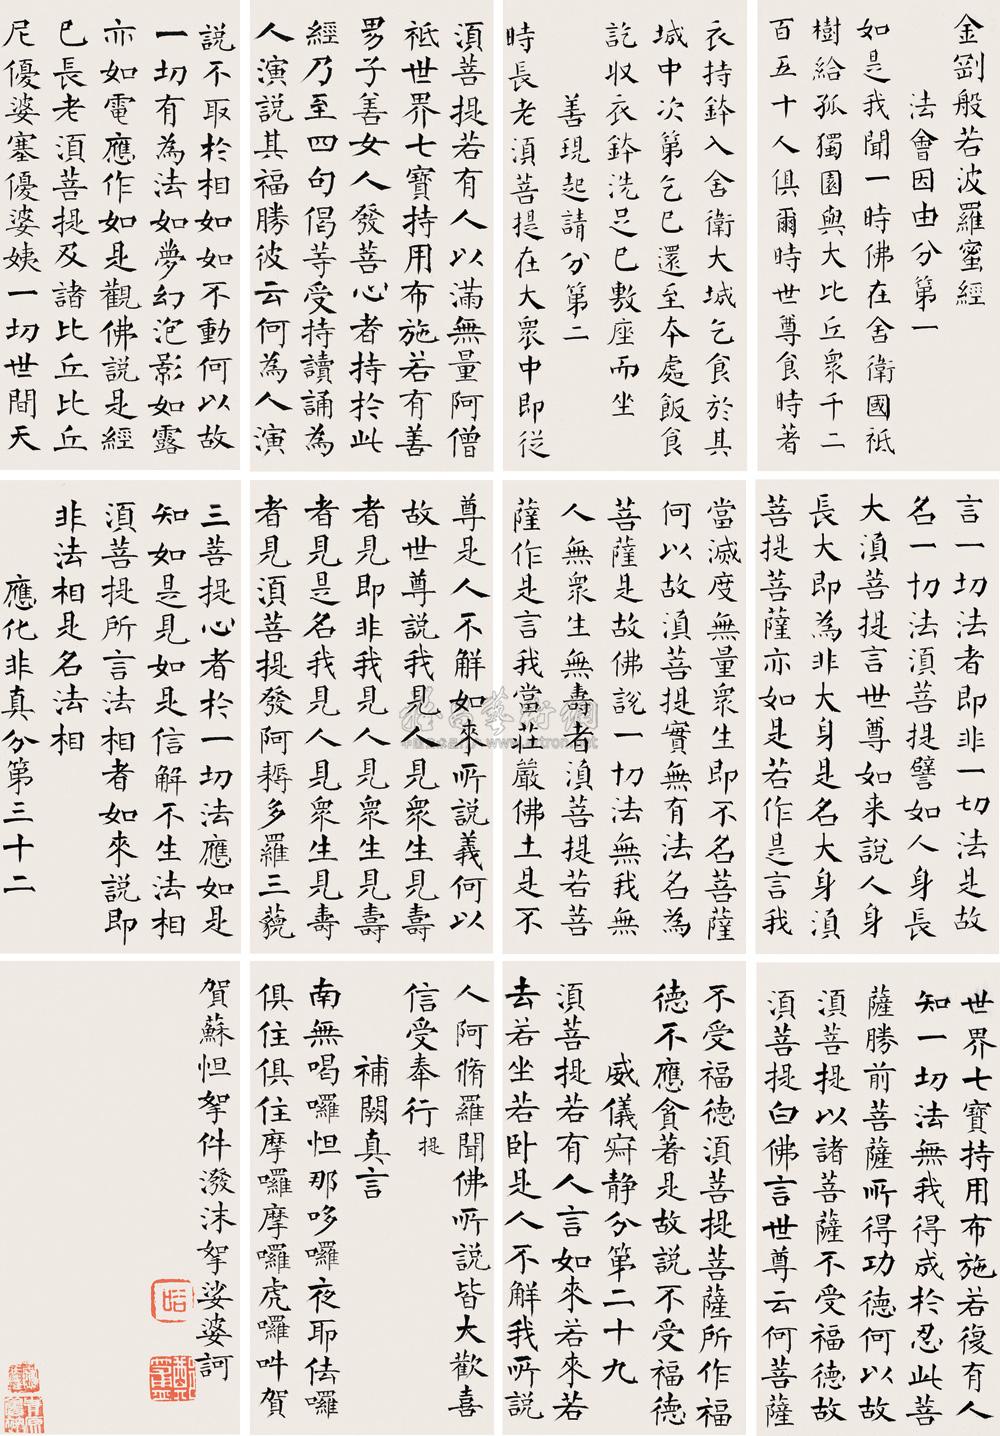 金剛般若波羅蜜經
法會因由分第一
如是我聞一時佛在舍衛國祇
樹給孤獨園與大比丘眾千二
百五十人俱爾時世尊食時著
衣持鉢入舍衛大城乞食於其
城中次第乞已還至本處飯食
訖收衣鉢洗足已敷座而坐
善現起請分第二
時長老須菩提在大眾中即從
須菩提若有人以滿無量阿僧
祇世界七寶持用布施若有善
男子善女人發菩心者持於此
經乃至四句偈等受持讀誦為
人演說其福勝彼云何為人演
說不取於相如如不動何以故
一切有為法如夢幻泡影如露
亦如電應作如是觀佛說是經
已長老須菩提及諸比丘比丘
尼優婆塞優婆姨一切世間天
言一切法者即非一切法是故
名一切法須菩提譬如人身長
大須菩提言世尊如来說人身
長大即為非大身是名大身須
菩提菩薩亦如是若作是言我
當滅度無量眾生即不名菩薩
何以故須菩提實無有法名為
菩薩是故佛說一切法無我無
人無眾生無壽者須菩提若菩
薩作是言我當莊嚴佛土是不
尊是人不解如來所說義何以
故世尊說我見人見眾生見壽
者見即非我見人見眾生見壽
者見是名我見人見眾生見壽
者見須菩提發阿耨多羅三藐
三菩提心者於一切法應如是
知如是見如是信解不生法相
須菩提所言法相者如來說即
非法相是名法相
應化非真分第三十二
世界七寶持用布施若復有人
知一切法無我得成於忍此菩
薩勝前菩薩所得功德何以故
須菩提以諸菩薩不受福德故
須菩提白佛言世尊云何菩薩
不受福德須菩提菩薩所作福
德不應貪著是故說不受福德
威儀寂静分第二十九
須菩提若有人言如來若來若
去若坐若卧是人不解我所說
人阿脩羅聞佛所說皆大歡喜
信受奉行 提
補闕真言
南無喝囉怛那哆囉夜耶佉囉
俱住俱住摩囉摩囉虎囉吽賀
賀蘇怛拏件潑沫拏娑婆訶